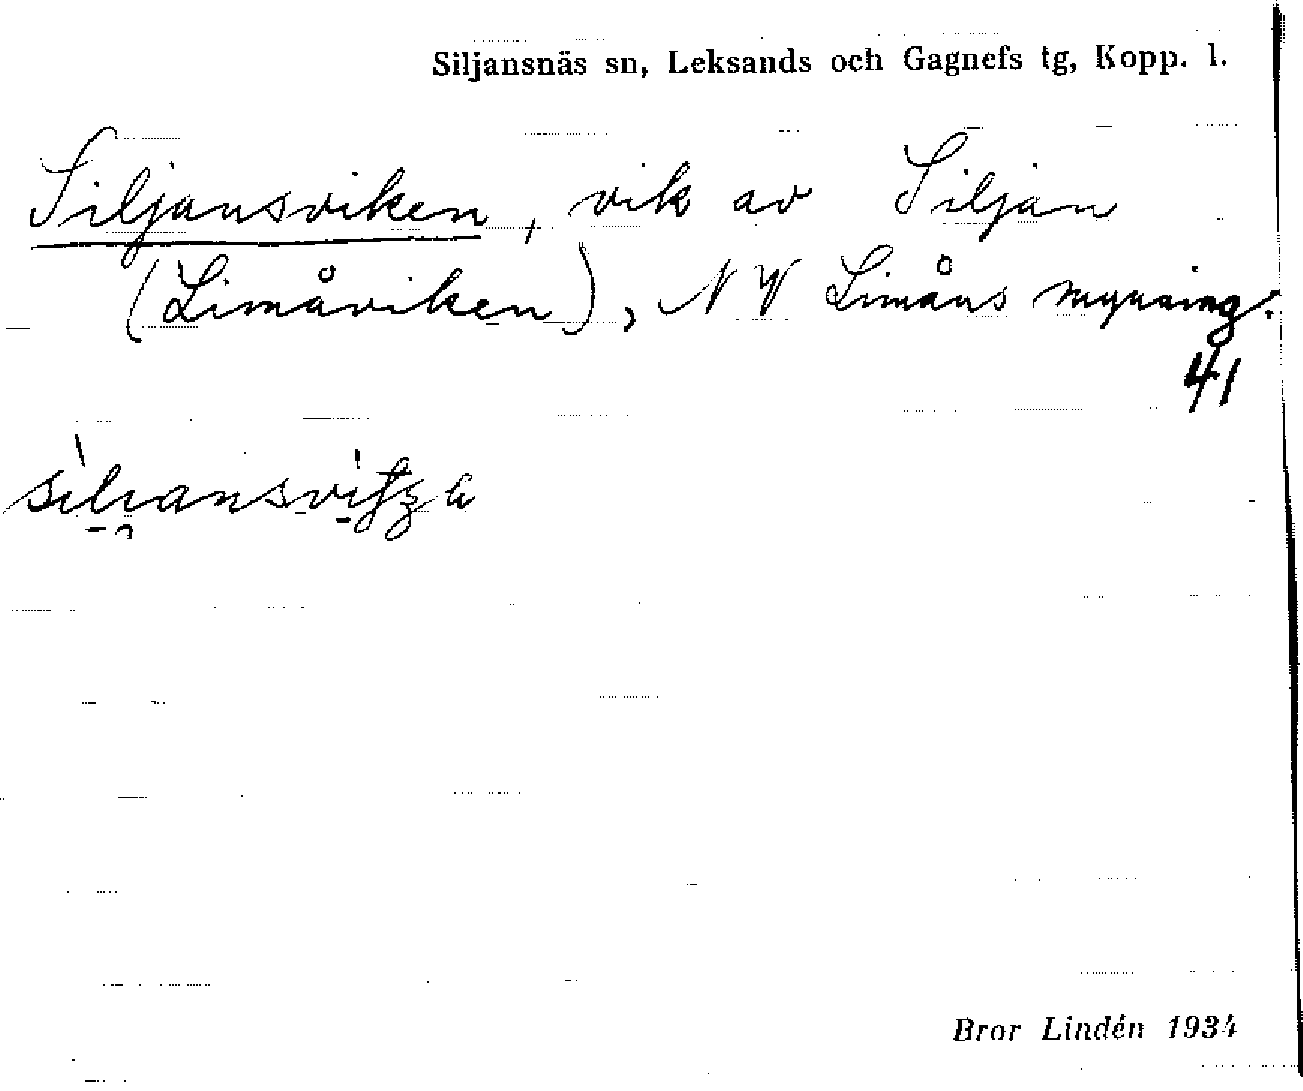 Siljansnäs sn, Leksands och Gagnefs tg, Kopp. l.
Siljansviken, vik av Siljan
(Limåviken), NV Limåns mynning.
41
Bror Lindén 1934